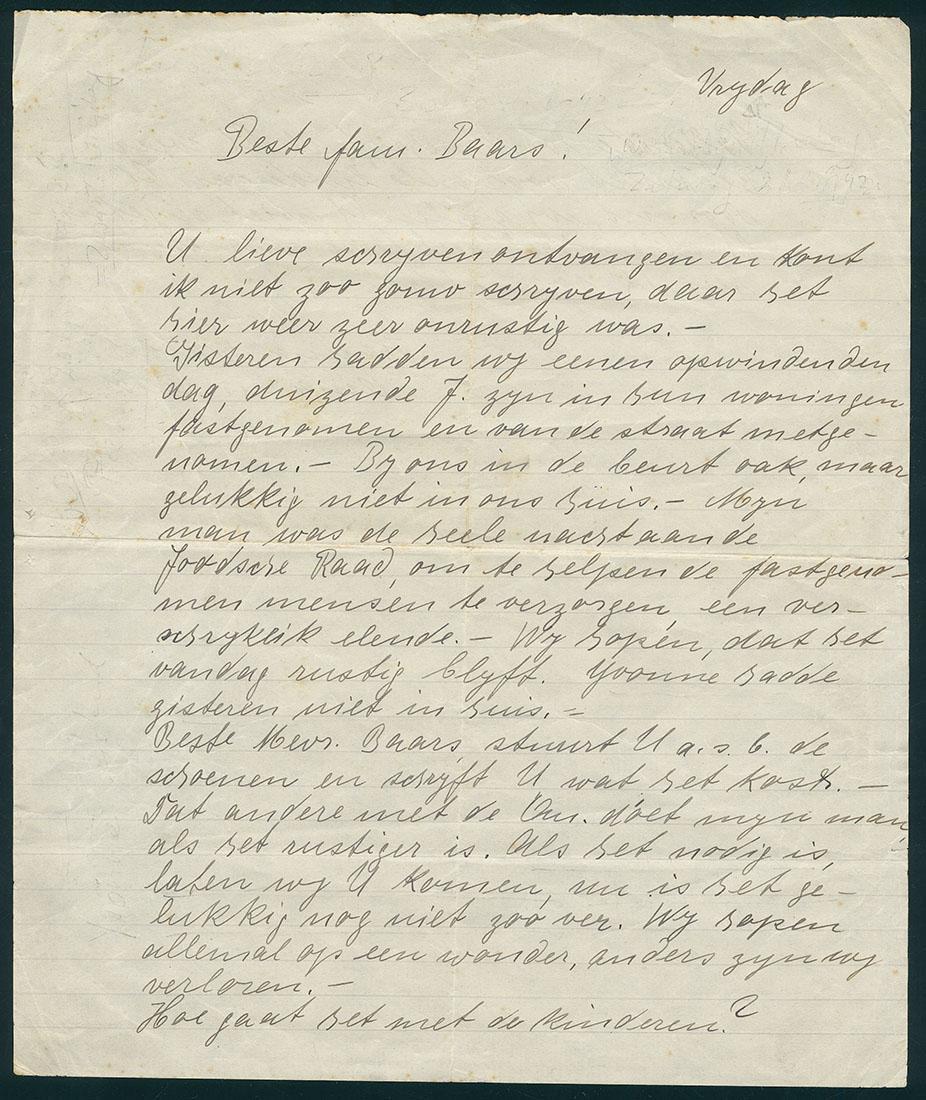 Vrydag
Beste fam. Baars!
U lieve schryven ontvangen en kont
ik niet zoo gauw schryven, daar het
hier weer zeer onrustig was. –
Gisteren hadden wy eenen opwindenden
dag, duizende J. zyn in hun woningen
fastgenomen en van de straat metge-
nomen. – By ons in de beurt ook, maar
gelukkig niet in ons huis. – Myn
man was de heele nacht aan de
Joodsche Raad, om te helpen de fastgeno-
men mensen te verzorgen, een ver-
schrykelik elende. – Wy hopen, dat het
vandag rustig blyft. Yvonne hadde
gisteren niet in huis. =
Beste Mevr. Baars stuurt U a.s.b. de
schoenen en schryft U wat het kost. –
Dat andere met de An. doet myn man,
als het rustiger is. Als het nodig is,
laten wy U komen, nu is het ge-
lukkig nog niet zoo ver. Wy hopen
allemal op een wonder, anders zyn wy
verloren. –
Hoe gaat het met de kinderen?